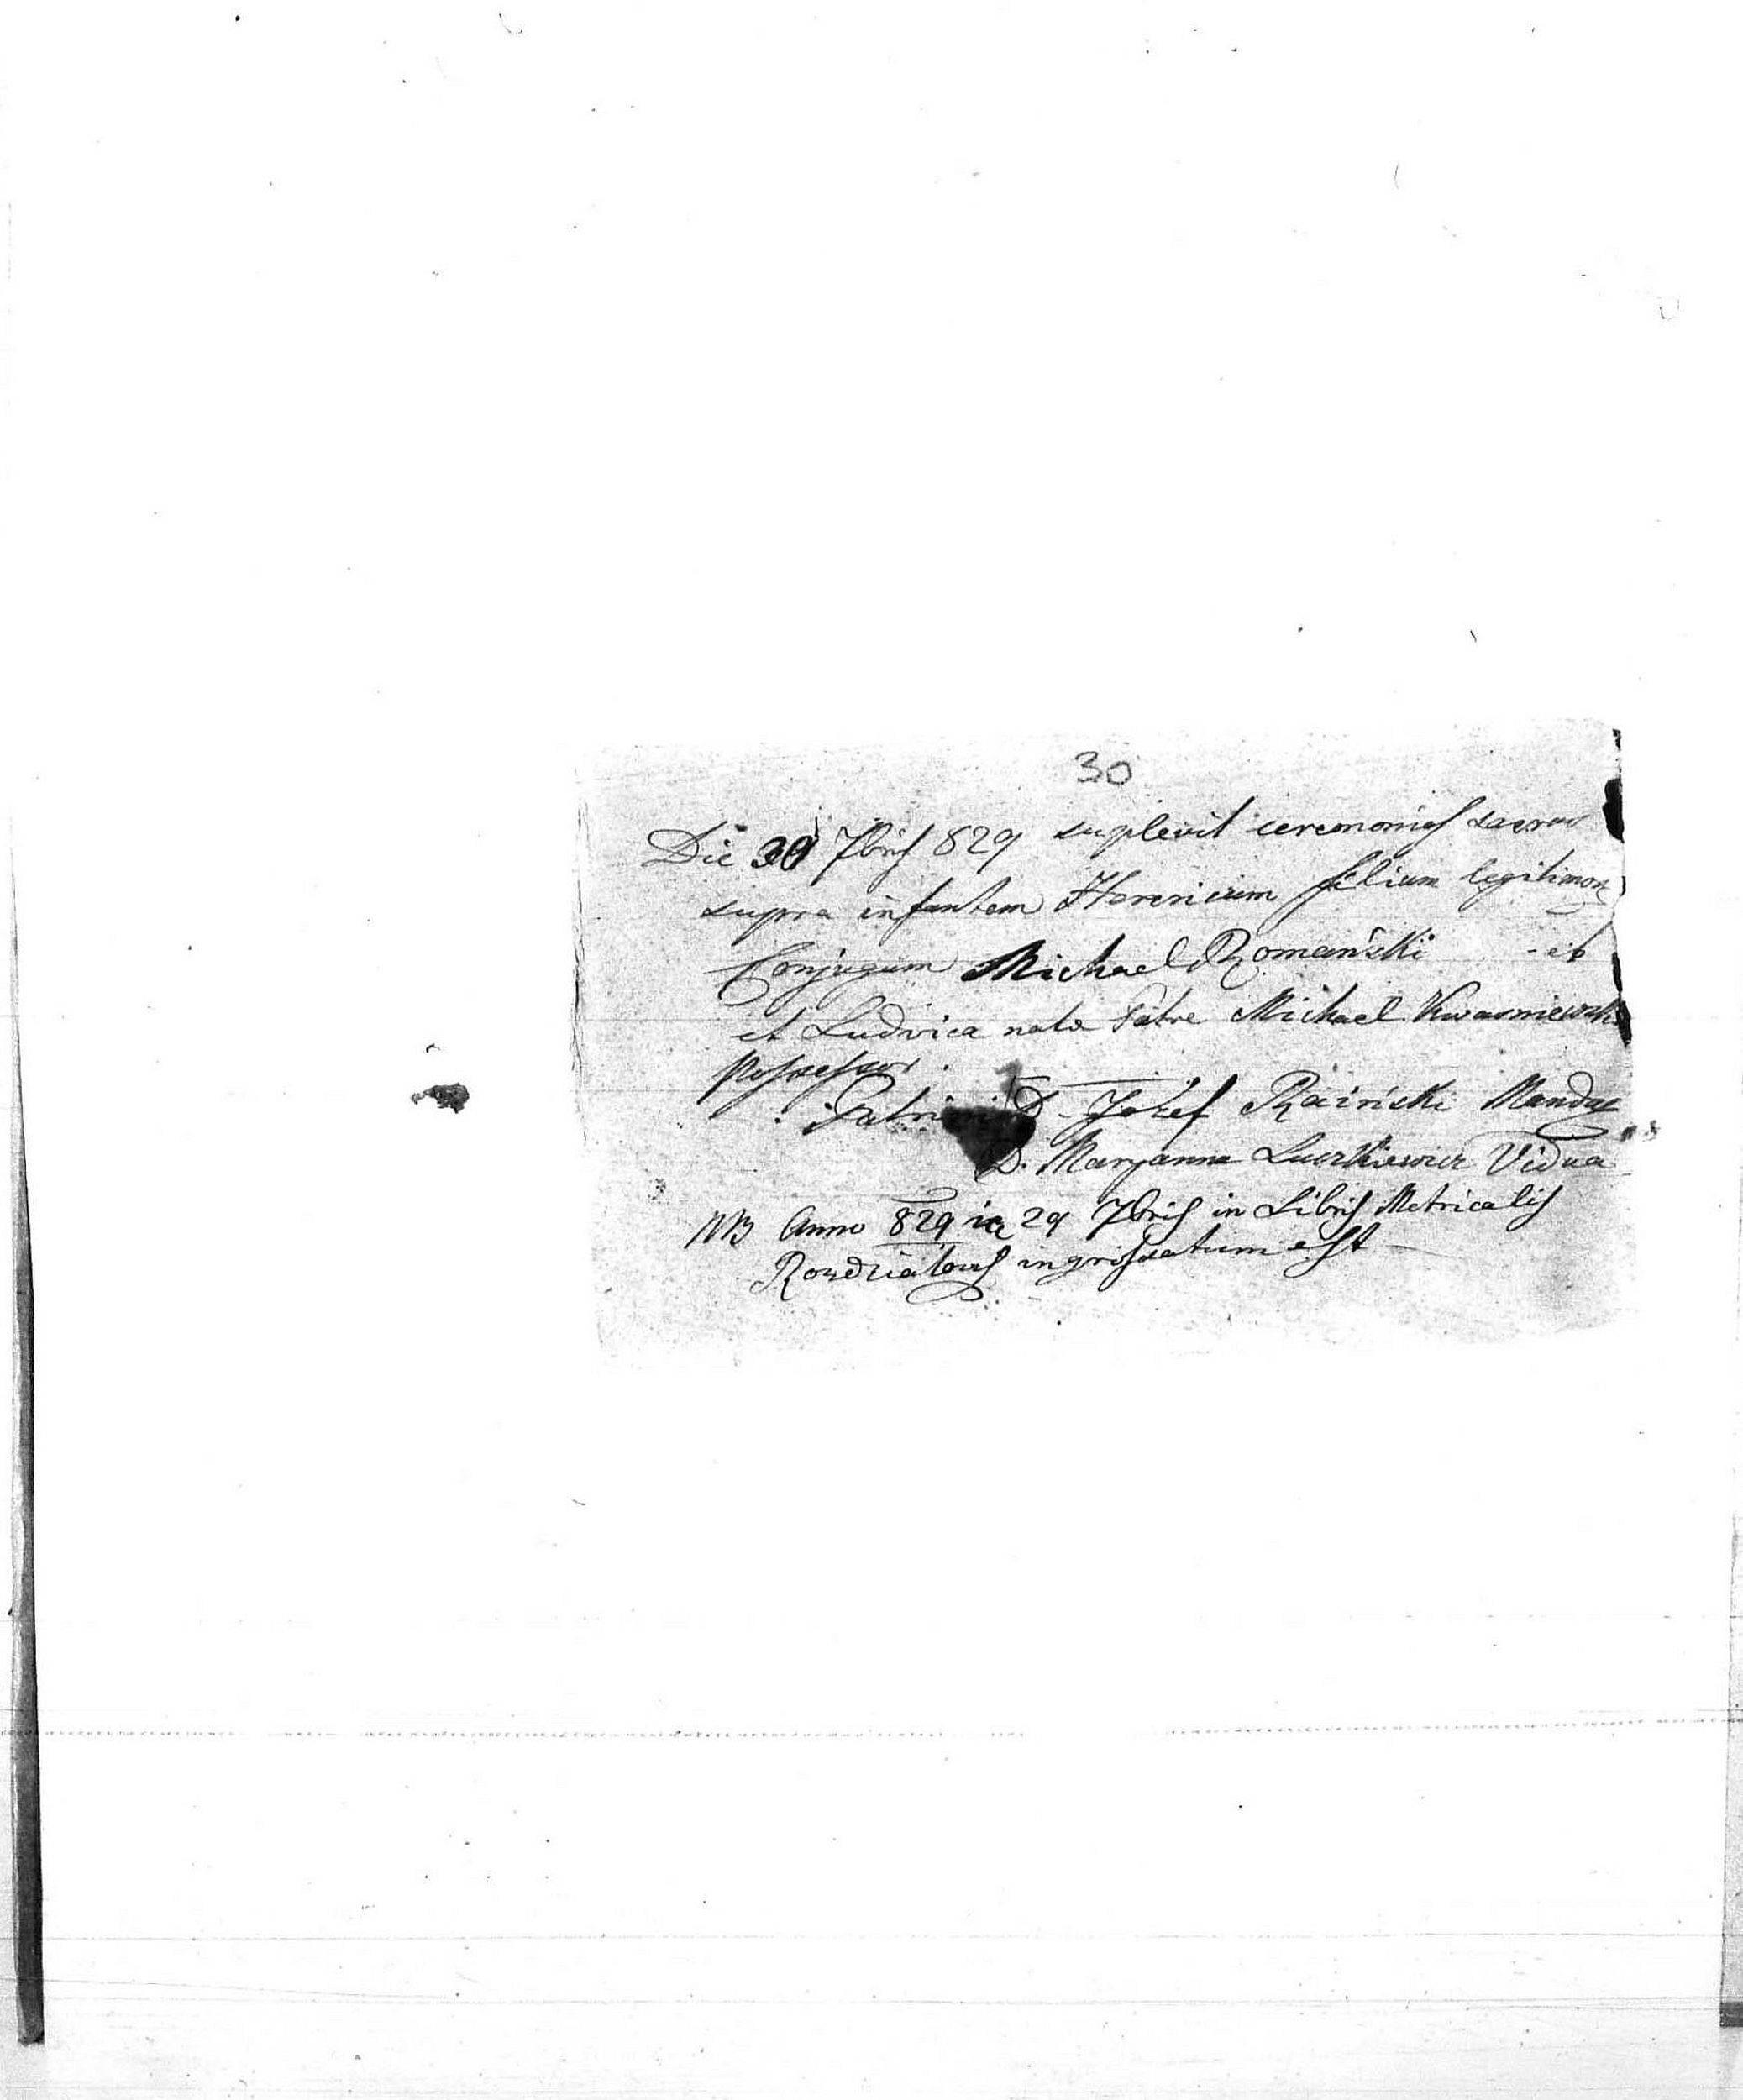 30
Die 30 7bris 829 suplevit ceremonias sacras
supra infantem Henricum filium legitimor
Conjugum Michael Romański et
et Ludvica nata Patre Michael Kwasniewski
Possessor.
Patrini D. Józef Raiński Mandat
D. Maryanna Luczkiewicz Vidua
NB Anno 829 29 7bris in Libris Metricalis
ingrossatum est